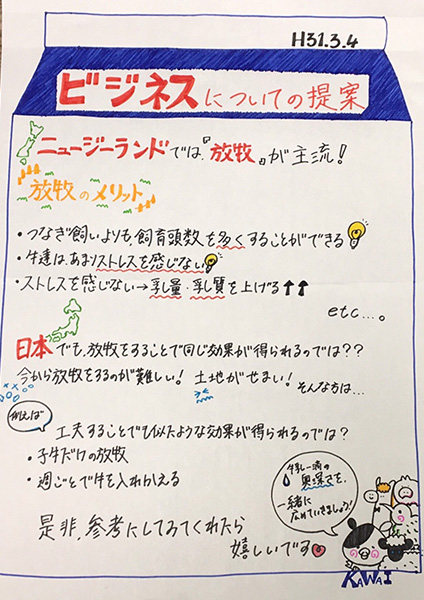 H31.3.4
ビジネスについての提案
ニュージーランドでは、『放牧』が主流!
放牧のメリット
・つなぎ飼いよりも、飼育頭数を多くすることができる
・牛達は、あまりストレスを感じない
・ストレスを感じない→乳量・乳質を上げる↑↑
etc...。
日本でも、放牧をすることで同じ効果が得られるのでは??
今から放牧をするのが難しい! 土地がせまい! そんな方は...
例えば
工夫することで似たような効果が得られるのでは?
・子牛だけの放牧
・週ごとで牛を入れかえる
是非、参考にしてみてくれたら
嬉しいです
牛乳一滴の
奥深さを、
一緒に
広めていきましょう!
KAWAI